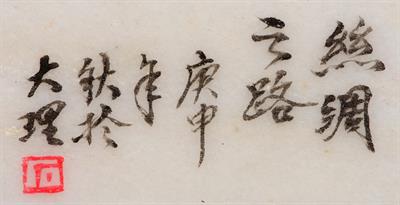 絲綢
之路
庚申
年
秋於
大理
石